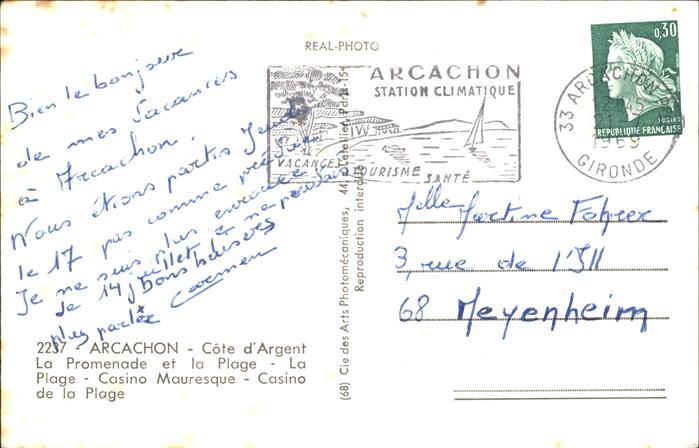 REAL-PHOTO
Bien le bonjour
de mes vacances
à Arcachon.
Nous étions partis Jeudi
le 17 pas comme prévu
Je ne suis plus enrouée
le 14 juillet à ne pouvoir
plus parler
bons baisers
Carmen
2237 - ARCACHON - Côte d'Argent
La Promenade et la Plage - La
Plage - Casino Mauresque - Casino
de la Plage
(68) Cie des Arts Photomécaniques, 44, Paris-15e
Reproduction interdite
ARCACHON
STATION CLIMATIQUE
VACANCES
TOURISME SANTÉ
33 ARCACHON
1969
GIRONDE
0,30
RÉPUBLIQUE FRANÇAISE
Mlle Martine Fohrer
3, rue de l'Ill
68 Meyenheim